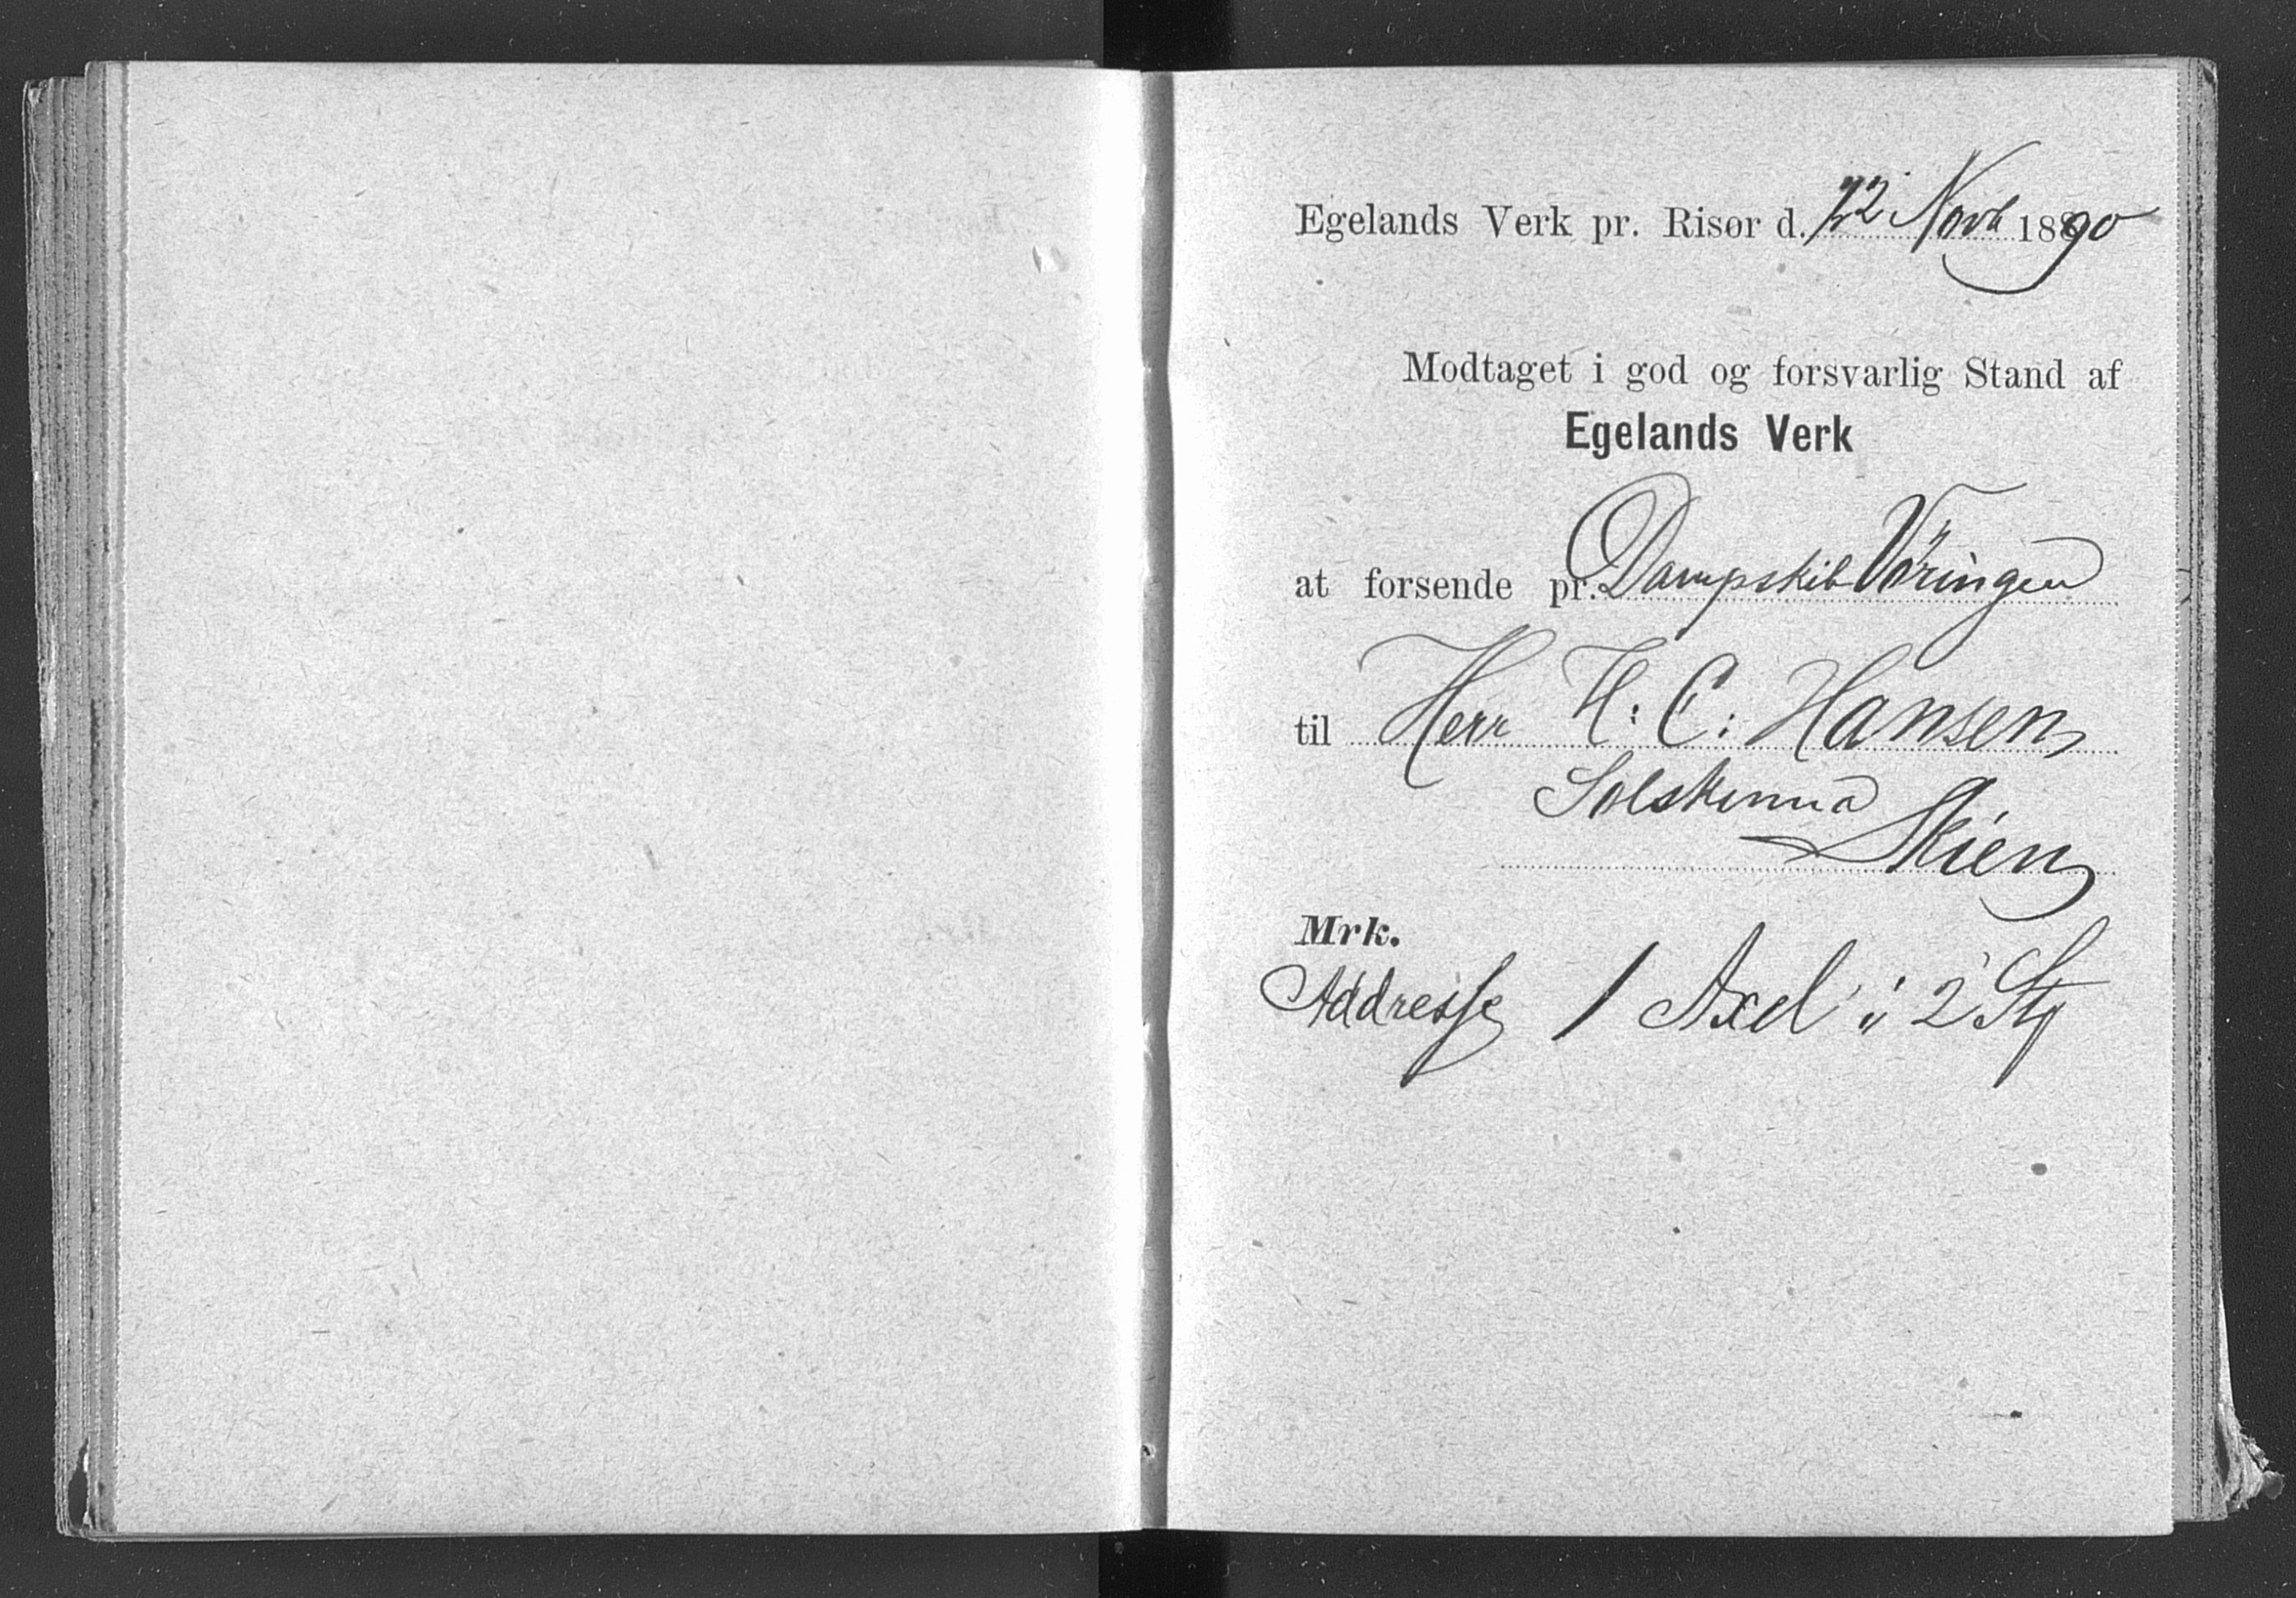 Egelands Verk pr. Risør d. 22 Novb 1890
Modtaget i god og forsvarlig Stand af
Egelands Verk
at forsende pr. Dampskib Vøringen
til Herr H. C. Hansen
Solskinna
Skien
Mrk.
Addresse 1 Axel i 2 Stk